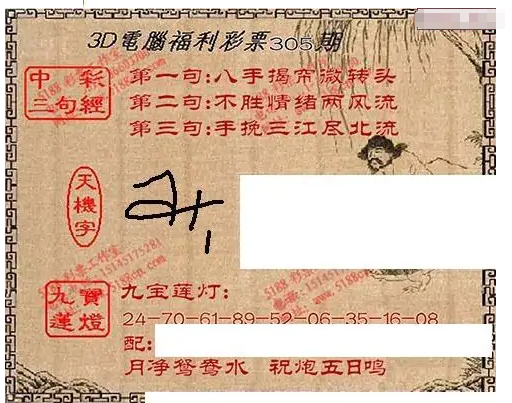 3D電腦福利彩票305期
中彩
三句經
第一句:八手揭帘微转头
第二句:不胜情绪两风流
第三句:手挽三江尽北流
天機字
九寶
蓮燈
九宝莲灯:
24-70-61-89-52-06-35-16-08
配:
月净鸳鸯水 祝炮五日鸣